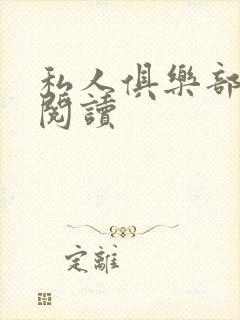 私人俱樂部
閱讀
定離